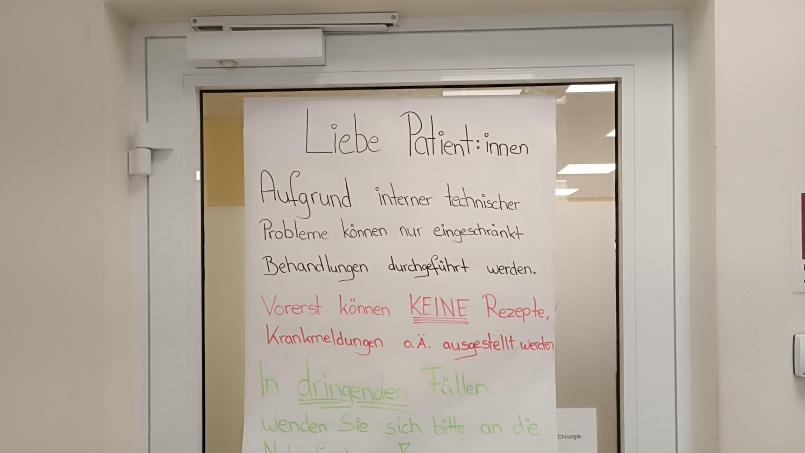 Liebe Patient:innen
Aufgrund interner technischer
Probleme können nur eingeschränkt
Behandlungen durchgeführt werden.
Vorerst können KEINE Rezepte,
Krankmeldungen o.Ä. ausgestellt werden
In dringenden Fällen
wenden Sie sich bitte an die
Chirurgie